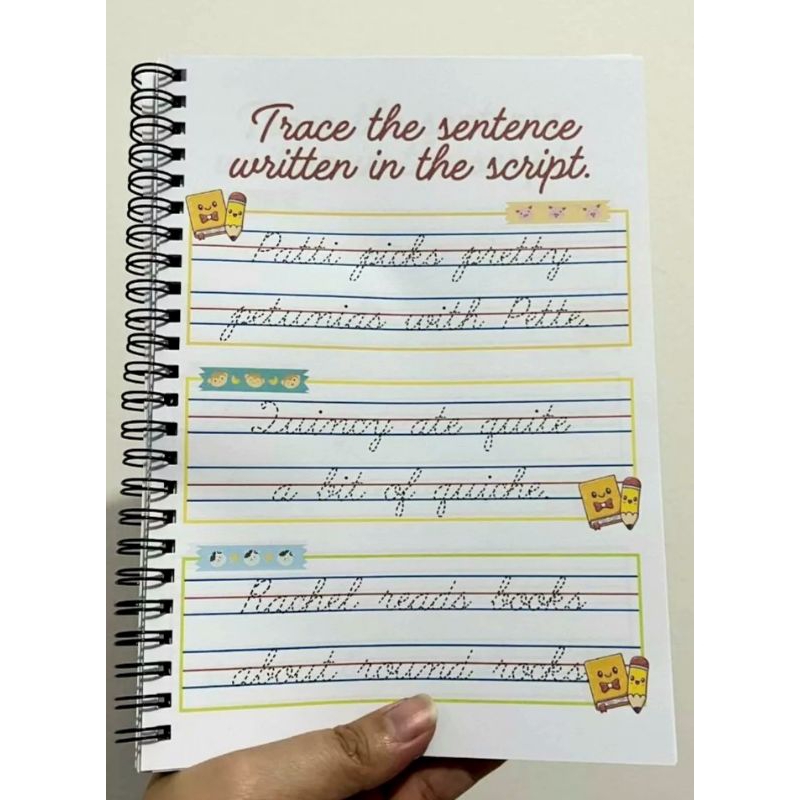 Trace the sentence
written in the script.
Patti picks pretty
petunias with Pette.
Quincy ate quite
a bit of quiche.
Rachel reads books
about round rocks